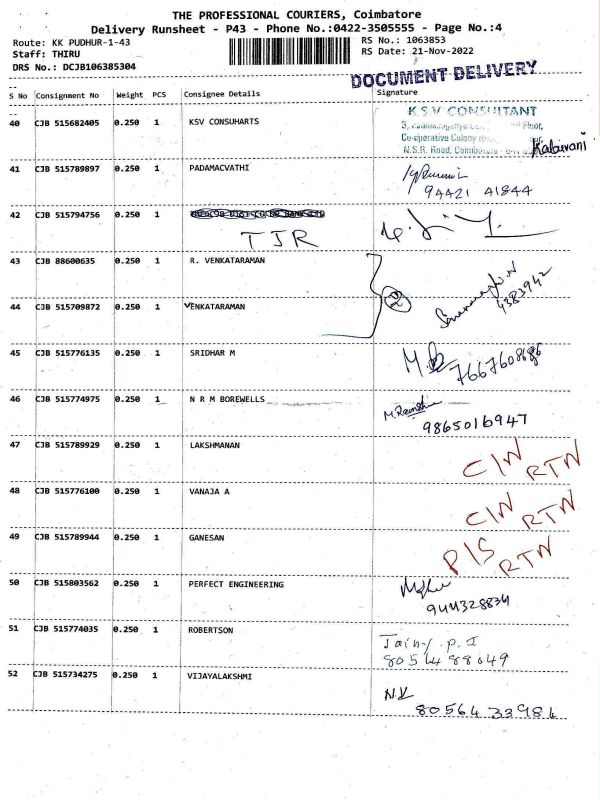 THE PROFESSIONAL COURIERS, Coimbatore
Delivery Runsheet - P43 - Phone No.:0422-3505555 - Page No.:4
Route: KK PUDHUR-1-43
RS No.: 1063853
Staff: THIRU
RS Date: 21-Nov-2022
DRS No.: DCJB106385304
DOCUMENT DELIVERY
S No Consignment No Weight PCS Consignee Details Signature
40 CJB 515682405 0.250 1 KSV CONSUHARTS
K.S.V CONSULTANT
3, Floor,
Co-operative Colony
N.S.R. Road,
Kalaivani
41 CJB 515789897 0.250 1 PADAMACVATHI
94421 41844
42 CJB 515794756 0.250 1
TJR
43 CJB 88600635 0.250 1 R. VENKATARAMAN
44 CJB 515709872 0.250 1 VENKATARAMAN
4383942
45 CJB 515776135 0.250 1 SRIDHAR M
46 CJB 515774975 0.250 1 N R M BOREWELLS
M.Ramesh
9865016947
47 CJB 515789929 0.250 1 LAKSHMANAN
C/N RTN
48 CJB 515776100 0.250 1 VANAJA A
C/N RTN
49 CJB 515789944 0.250 1 GANESAN
P/S RTN
50 CJB 515803562 0.250 1 PERFECT ENGINEERING
944328834
51 CJB 515774035 0.250 1 ROBERTSON
52 CJB 515734275 0.250 1 VIJAYALAKSHMI
NK
80564 33984